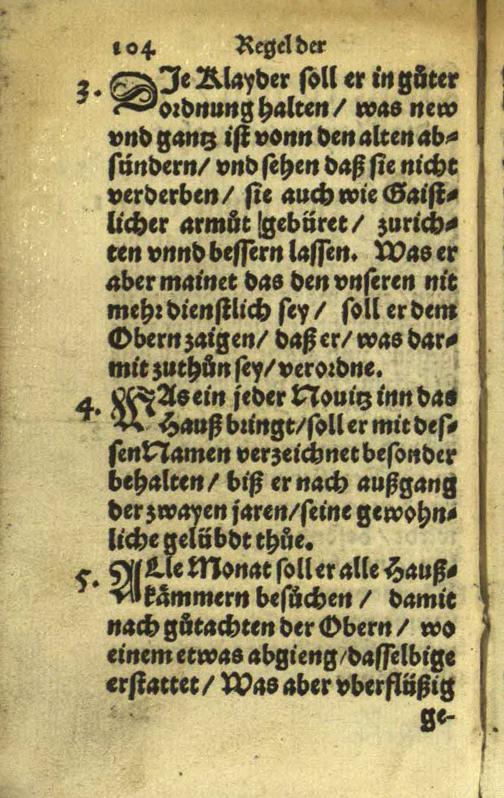 104 Regel der
3. DJe Klayder soll er in gůter
ordnung halten / was new
vnd gantz ist vonn den alten ab-
sündern/ vnd sehen daß sie nicht
verderben / sie auch wie Gaist-
licher armůt gebüret / zurich-
ten vnnd bessern lassen. Was er
aber mainet das den vnseren nit
mehr dienstlich sey / soll er dem
Obern zaigen / daß er / was dar-
mit zuthůn sey / verordne.
4. WAs ein jeder Novitz inn das
Hauß bringt/soll er mit des-
sen Namen verzeichnet besonder
behalten / biß er nach außgang
der zwayen jaren/seine gewohn-
liche gelübdt thůe.
5. ALle Monat soll er alle Hauß-
kämmern besůchen / damit
nach gůtachten der Obern / wo
einem etwas abgieng/dasselbige
erstattet / Was aber vberflüßig
ge-